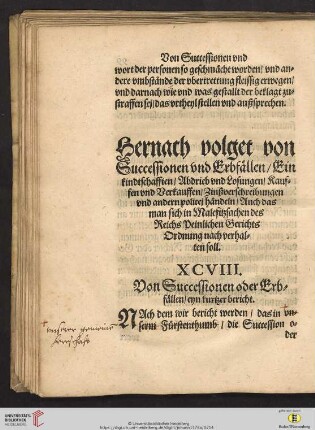 Von Successionen vnd
wort der personen so geschmächt worden / vnd an-
dere vmbstände der vbertrettung fleissig erwegen /
vnd darnach wie vnd was gestallt der beklagt zu-
straffen sej / das vrtheyl stellen vnd aussprechen.
Hernach volget von
Successionen vnd Erbfällen / Ein
kindtschafften / Abdrich vnd Losungen / Kauf-
fen vnd Verkauffen / Zinsverschreibungen
vnd andern policei händeln / Auch das
man sich in Malefitzsachen des
Reichs Peinlichen Gerichts
Ordnung nach verhal-
ten soll.
XCVIII.
Von Successionen oder Erb-
fällen / eyn kurtzer bericht.
NAch dem wir bericht werden / das in vn-
serm Fürstenthumb / die Succession o-
der